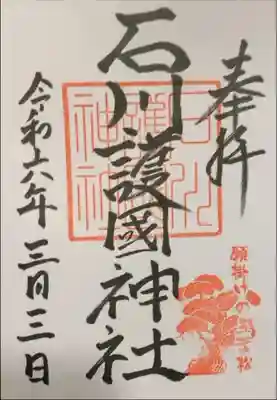 奉拝
石川護國神社
令和六年三月三日
願掛けの
松